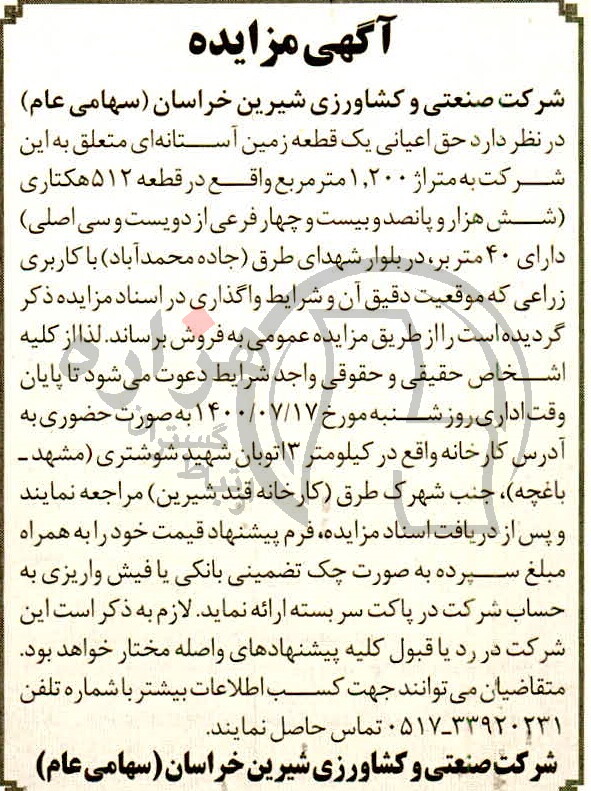 آگهی مزایده
شرکت صنعتی و کشاورزی شیرین خراسان (سهامی عام)
در نظر دارد حق اعیانی یک قطعه زمین آستانه‌ای متعلق به این
شرکت به متراژ ۱,۲۰۰ متر مربع واقع در قطعه ۵۱۲ هکتاری
(شش هزار و پانصد و بیست و چهار فرعی از دویست و سی اصلی)
دارای ۴۰ متر بر، در بلوار شهدای طرق (جاده محمدآباد) با کاربری
زراعی که موقعیت دقیق آن و شرایط واگذاری در اسناد مزایده ذکر
گردیده است را از طریق مزایده عمومی به فروش برساند. لذا از کلیه
اشخاص حقیقی و حقوقی واجد شرایط دعوت می‌شود تا پایان
وقت اداری روز شنبه مورخ ۱۴۰۰/۰۷/۱۷ به صورت حضوری به
آدرس کارخانه واقع در کیلومتر ۳ اتوبان شهید شوشتری (مشهد ـ
باغچه)، جنب شهرک طرق (کارخانه قند شیرین) مراجعه نمایند
و پس از دریافت اسناد مزایده، فرم پیشنهاد قیمت خود را به همراه
مبلغ سپرده به صورت چک تضمینی بانکی یا فیش واریزی به
حساب شرکت در پاکت سر بسته ارائه نماید. لازم به ذکر است این
شرکت در رد یا قبول کلیه پیشنهادهای واصله مختار خواهد بود.
متقاضیان می‌توانند جهت کسب اطلاعات بیشتر با شماره تلفن
۰۵۱۷-۳۳۹۲۰۲۳۱ تماس حاصل نمایند.
شرکت صنعتی و کشاورزی شیرین خراسان (سهامی عام)
هزاره
گستران
ارتباط